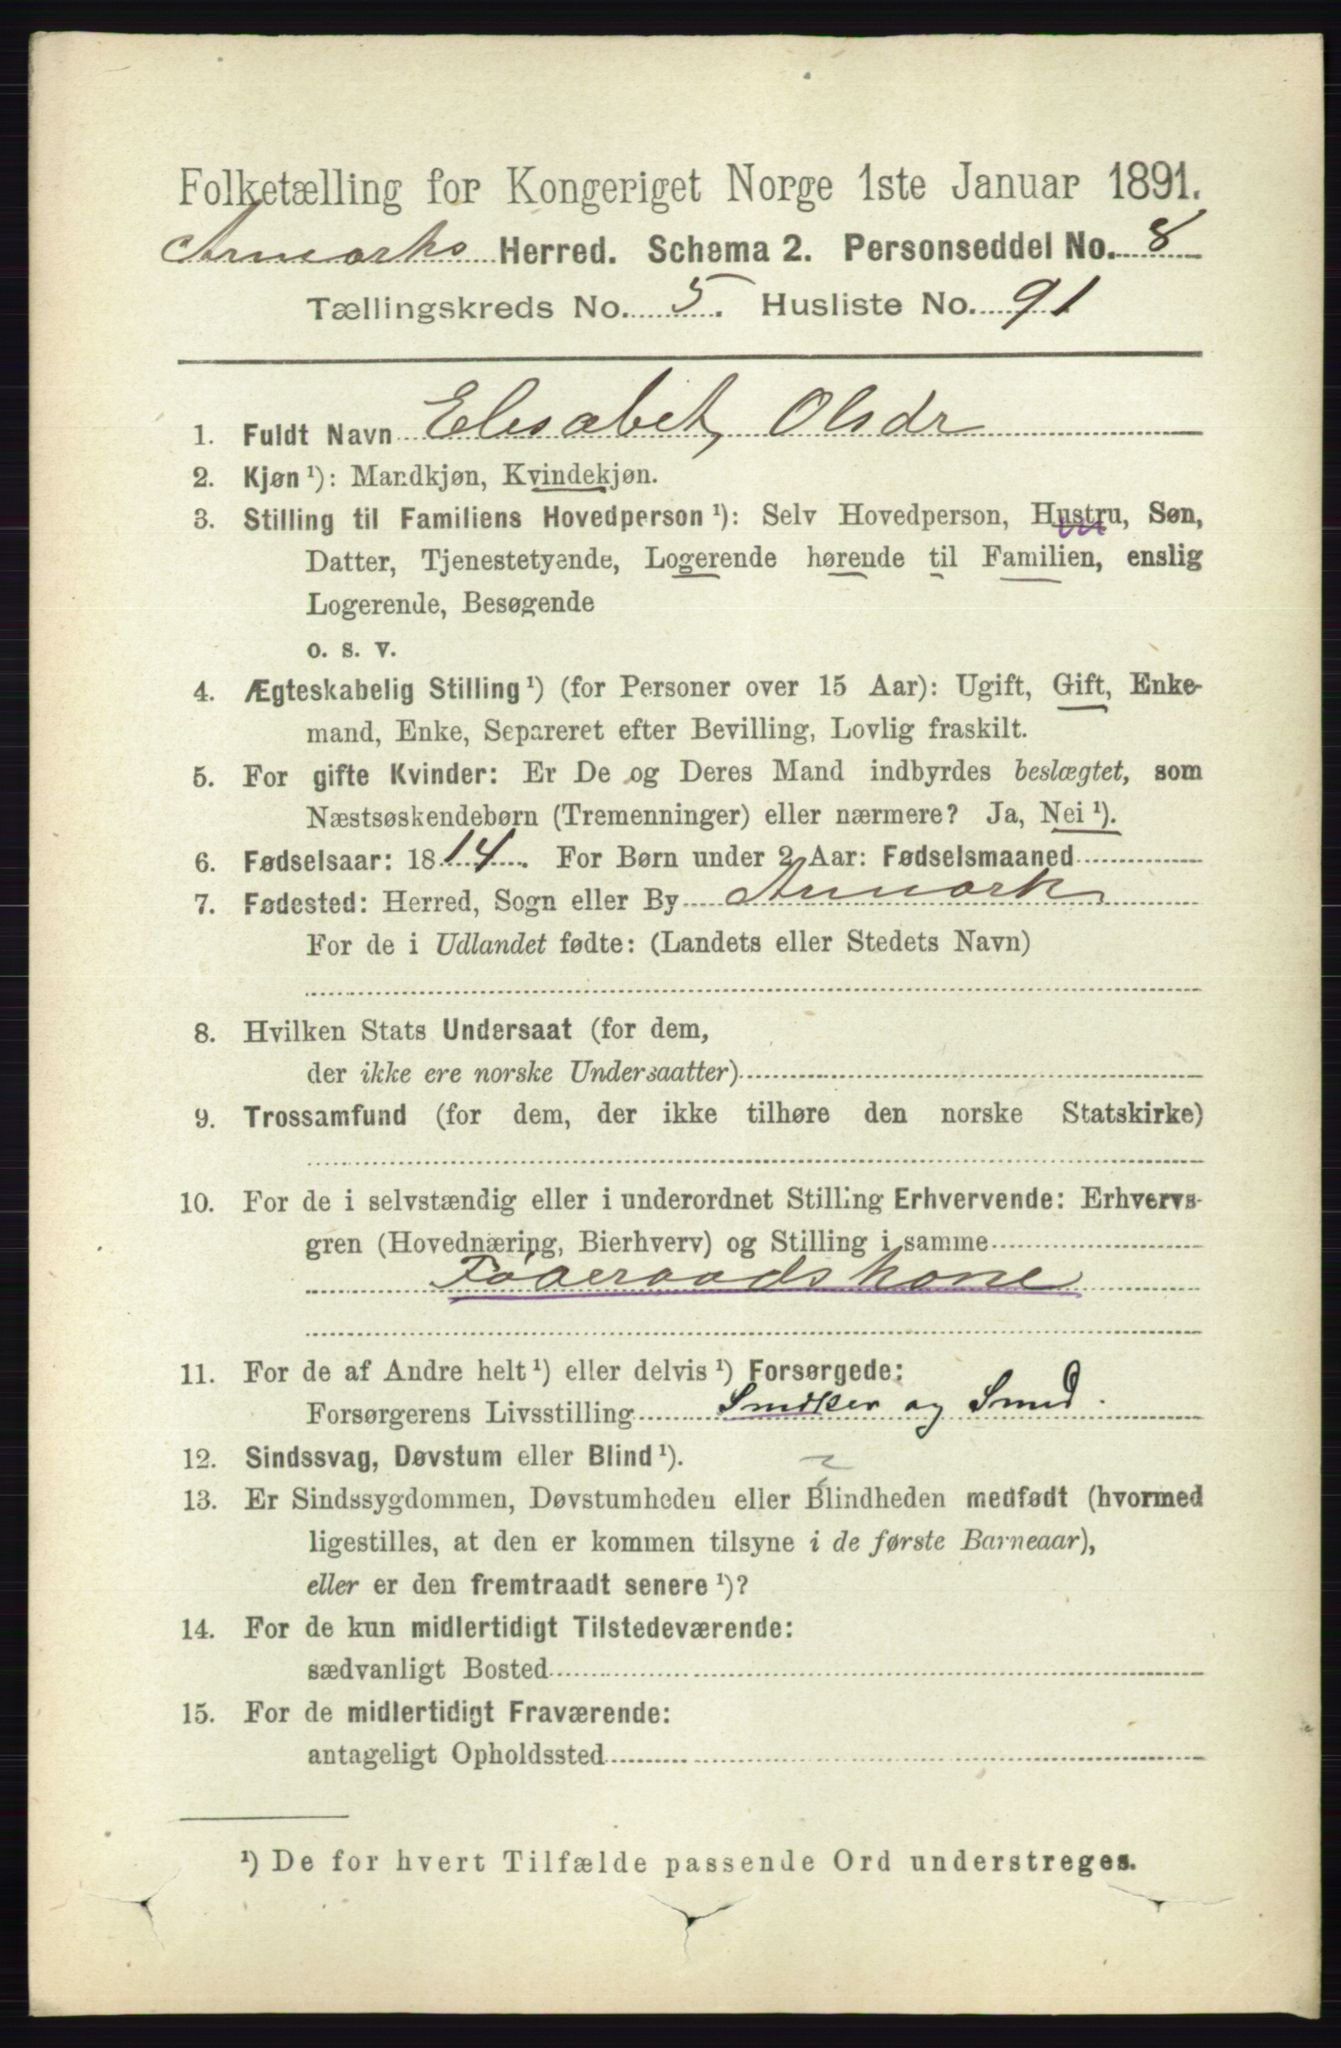 Folketælling for Kongeriget Norge 1ste Januar 1891.
Aremarks Herred. Schema 2. Personseddel No. 8
Tællingskreds No. 5. Husliste No. 91
1. Fuldt Navn Elisabet Olsdr
2. Kjøn ¹): Mandkjøn, Kvindekjøn.
3. Stilling til Familiens Hovedperson ¹): Selv Hovedperson, Hustru, Søn,
Datter, Tjenestetyende, Logerende hørende til Familien, enslig
Logerende, Besøgende
o. s. v.
4. Ægteskabelig Stilling ¹) (for Personer over 15 Aar): Ugift, Gift, Enke-
mand, Enke, Separeret efter Bevilling, Lovlig fraskilt.
5. For gifte Kvinder: Er De og Deres Mand indbyrdes beslægtet, som
Næstsøskendebørn (Tremenninger) eller nærmere? Ja, Nei ¹).
6. Fødselsaar: 1814. For Børn under 2 Aar: Fødselsmaaned
7. Fødested: Herred, Sogn eller By Aremark
For de i Udlandet fødte: (Landets eller Stedets Navn)
8. Hvilken Stats Undersaat (for dem,
der ikke ere norske Undersaatter)
9. Trossamfund (for dem, der ikke tilhøre den norske Statskirke)
10. For de i selvstændig eller i underordnet Stilling Erhvervende: Erhvervs-
gren (Hovednæring, Bierhverv) og Stilling i samme
Føderaadskone
11. For de af Andre helt ¹) eller delvis ¹) Forsørgede:
Forsørgerens Livsstilling Snedker og Smed.
12. Sindssvag, Døvstum eller Blind ¹).
13. Er Sindssygdommen, Døvstumheden eller Blindheden medfødt (hvormed
ligestilles, at den er kommen tilsyne i de første Barneaar),
eller er den fremtraadt senere ¹)?
14. For de kun midlertidigt Tilstedeværende:
sædvanligt Bosted
15. For de midlertidigt Fraværende:
antageligt Opholdssted
¹) De for hvert Tilfælde passende Ord understreges.